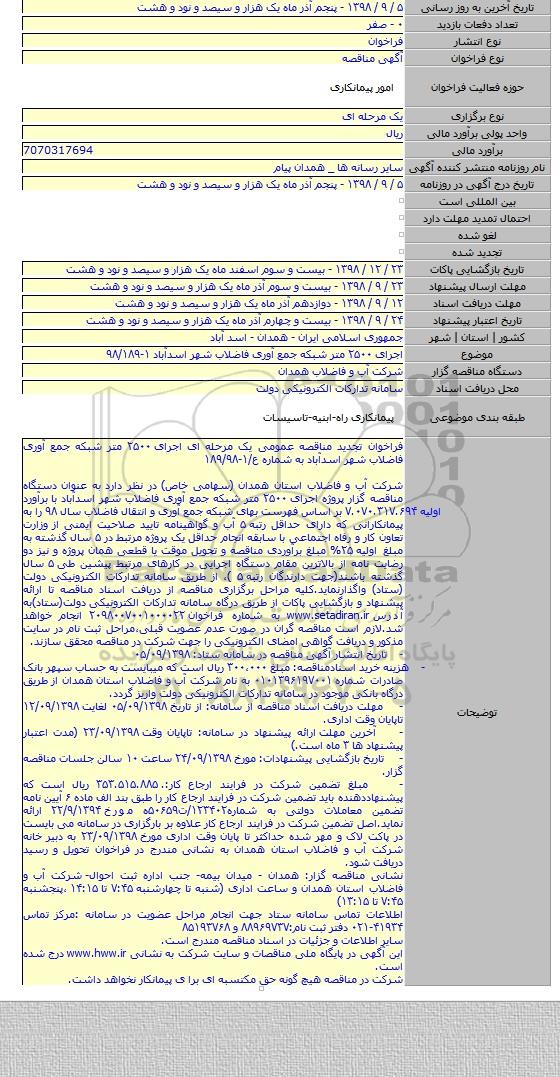 تاریخ آخرین به روز رسانی ۵ / ۹ / ۱۳۹۸ - پنجم آذر ماه یک هزار و سیصد و نود و هشت
تعداد دفعات بازدید ۰ - صفر
نوع انتشار فراخوان
نوع فراخوان آگهی مناقصه
حوزه فعالیت فراخوان امور پیمانکاری
نوع برگزاری یک مرحله ای
واحد پولی برآورد مالی ریال
برآورد مالی 7070317694
نام روزنامه منتشر کننده آگهی سایر رسانه ها _ همدان پیام
تاریخ درج آگهی در روزنامه ۵ / ۹ / ۱۳۹۸ - پنجم آذر ماه یک هزار و سیصد و نود و هشت
بین المللی است
احتمال تمدید مهلت دارد
لغو شده
تجدید شده
تاریخ بازگشایی پاکات ۲۳ / ۱۲ / ۱۳۹۸ - بیست و سوم اسفند ماه یک هزار و سیصد و نود و هشت
مهلت ارسال پیشنهاد ۲۳ / ۹ / ۱۳۹۸ - بیست و سوم آذر ماه یک هزار و سیصد و نود و هشت
مهلت دریافت اسناد ۱۲ / ۹ / ۱۳۹۸ - دوازدهم آذر ماه یک هزار و سیصد و نود و هشت
تاریخ اعتبار پیشنهاد ۲۴ / ۹ / ۱۳۹۸ - بیست و چهارم آذر ماه یک هزار و سیصد و نود و هشت
کشور | استان | شهر جمهوری اسلامی ایران - همدان - اسد آباد
موضوع اجرای ۲۵۰۰ متر شبکه جمع آوری فاضلاب شهر اسدآباد ۱-۹۸/۱۸۹
دستگاه مناقصه گزار شرکت آب و فاضلاب همدان
محل دریافت اسناد سامانه تدارکات الکترونیکی دولت
طبقه بندی موضوعی پیمانکاری راه-ابنیه-تاسیسات
توضیحات
فراخوان تجدید مناقصه عمومی یک مرحله ای اجرای ۲۵۰۰ متر شبکه جمع آوری
فاضلاب شهر اسدآباد به شماره ع/۱-۱۸۹/۹۸
شرکت آب و فاضلاب استان همدان (سهامی خاص) در نظر دارد به عنوان دستگاه
مناقصه گزار پروژه اجرای ۲۵۰۰ متر شبکه جمع آوری فاضلاب شهر اسدآباد با برآورد
اولیه ۷.۰۷۰.۳۱۷.۶۹۴ بر اساس فهرست بهای شبکه جمع آوری و انتقال فاضلاب سال ۹۸ را به
پیمانکارانی که دارای حداقل رتبه ۵ آب و گواهینامه تایید صلاحیت ایمنی از وزارت
تعاون کار و رفاه اجتماعی با سابقه انجام حداقل یک پروژه مرتبط در ۵ سال گذشته به
مبلغ اولیه ۲۵% مبلغ برآوردی مناقصه و تحویل موقت یا قطعی همان پروژه و نیز دو
رضایت نامه از بالاترین مقام دستگاه اجرایی در کارهای مرتبط پیشین طی ۵ سال
گذشته باشند(جهت دارندگان رتبه ۵ )، از طریق سامانه تدارکات الکترونیکی دولت
(ستاد) واگذارنماید.کلیه مراحل برگزاری مناقصه از دریافت اسناد مناقصه تا ارائه
پیشنهاد و بازگشایی پاکات از طریق درگاه سامانه تدارکات الکترونیکی دولت(ستاد)به
آدرس www.setadiran.ir به شماره فراخوان ۲۰۹۸۰۰۷۰۰۱۰۰۰۰۲۲ انجام خواهد
شد.لازم است مناقصه گران در صورت عدم عضویت قبلی،مراحل ثبت نام در سایت
مذکور و دریافت گواهی امضای الکترونیکی را جهت شرکت در مناقصه محقق سازند.
- تاریخ انتشار آگهی مناقصه در سامانه ستاد: ۰۵/۰۹/۱۳۹۸
- هزینه خرید اسنادمناقصه: مبلغ ۳۰۰،۰۰۰ ریال است که میبایست به حساب سپهر بانک
صادرات شماره ۰۱۰۱۳۹۶۱۹۷۰۰۱ به نام شرکت آب و فاضلاب استان همدان از طریق
درگاه بانکی موجود در سامانه تدارکات الکترونیکی دولت واریز گردد.
- مهلت دریافت اسناد مناقصه از سامانه: از تاریخ ۰۵/۰۹/۱۳۹۸ لغایت ۱۲/۰۹/۱۳۹۸
تاپایان وقت اداری.
- آخرین مهلت ارائه پیشنهاد در سامانه: تاپایان وقت ۲۳/۰۹/۱۳۹۸ (مدت اعتبار
پیشنهاد ها ۳ ماه است.)
- تاریخ بازگشایی پیشنهادات: مورخ ۲۴/۰۹/۱۳۹۸ ساعت ۱۰ سالن جلسات مناقصه
گزار.
- مبلغ تضمین شرکت در فرایند ارجاع کار:. ۳۵۳.۵۱۵.۸۸۵ ریال است که
پیشنهاددهنده باید تضمین شرکت در فرایند ارجاع کار را طبق بند الف ماده ۶ آیین نامه
تضمین معاملات دولتی به شماره۱۲۳۴۰۲/ت۵۰۶۵۹ه مورخ ۲۲/۹/۱۳۹۴ ارائه
نماید.اصل تضمین شرکت در فرایند ارجاع کار علاوه بر بارگزاری در سامانه می بایست
در پاکت لاک و مهر شده حداکثر تا پایان وقت اداری مورخ ۲۳/۰۹/۱۳۹۸ به دبیر خانه
شرکت آب و فاضلاب استان همدان به نشانی مندرج در فراخوان تحویل و رسید
دریافت شود.
نشانی مناقصه گزار: همدان - میدان بیمه- جنب اداره ثبت احوال- شرکت آب و
فاضلاب استان همدان و ساعت اداری (شنبه تا چهارشنبه ۷:۴۵ تا ۱۴:۱۵ ،پنجشنبه
۷:۴۵ تا ۱۳:۱۵)
اطلاعات تماس سامانه ستاد جهت انجام مراحل عضویت در سامانه :مرکز تماس
۰۲۱-۴۱۹۳۴ دفتر ثبت نام:۸۸۹۶۹۷۳۷ و ۸۵۱۹۳۷۶۸
سایر اطلاعات و جزئیات در اسناد مناقصه مندرج است.
این آگهی در پایگاه ملی مناقصات و سایت شرکت به نشانی www.hww.ir درج شده
است.
شرکت در مناقصه هیچ گونه حق مکتسبه ای برا ی پیمانکار نخواهد داشت.